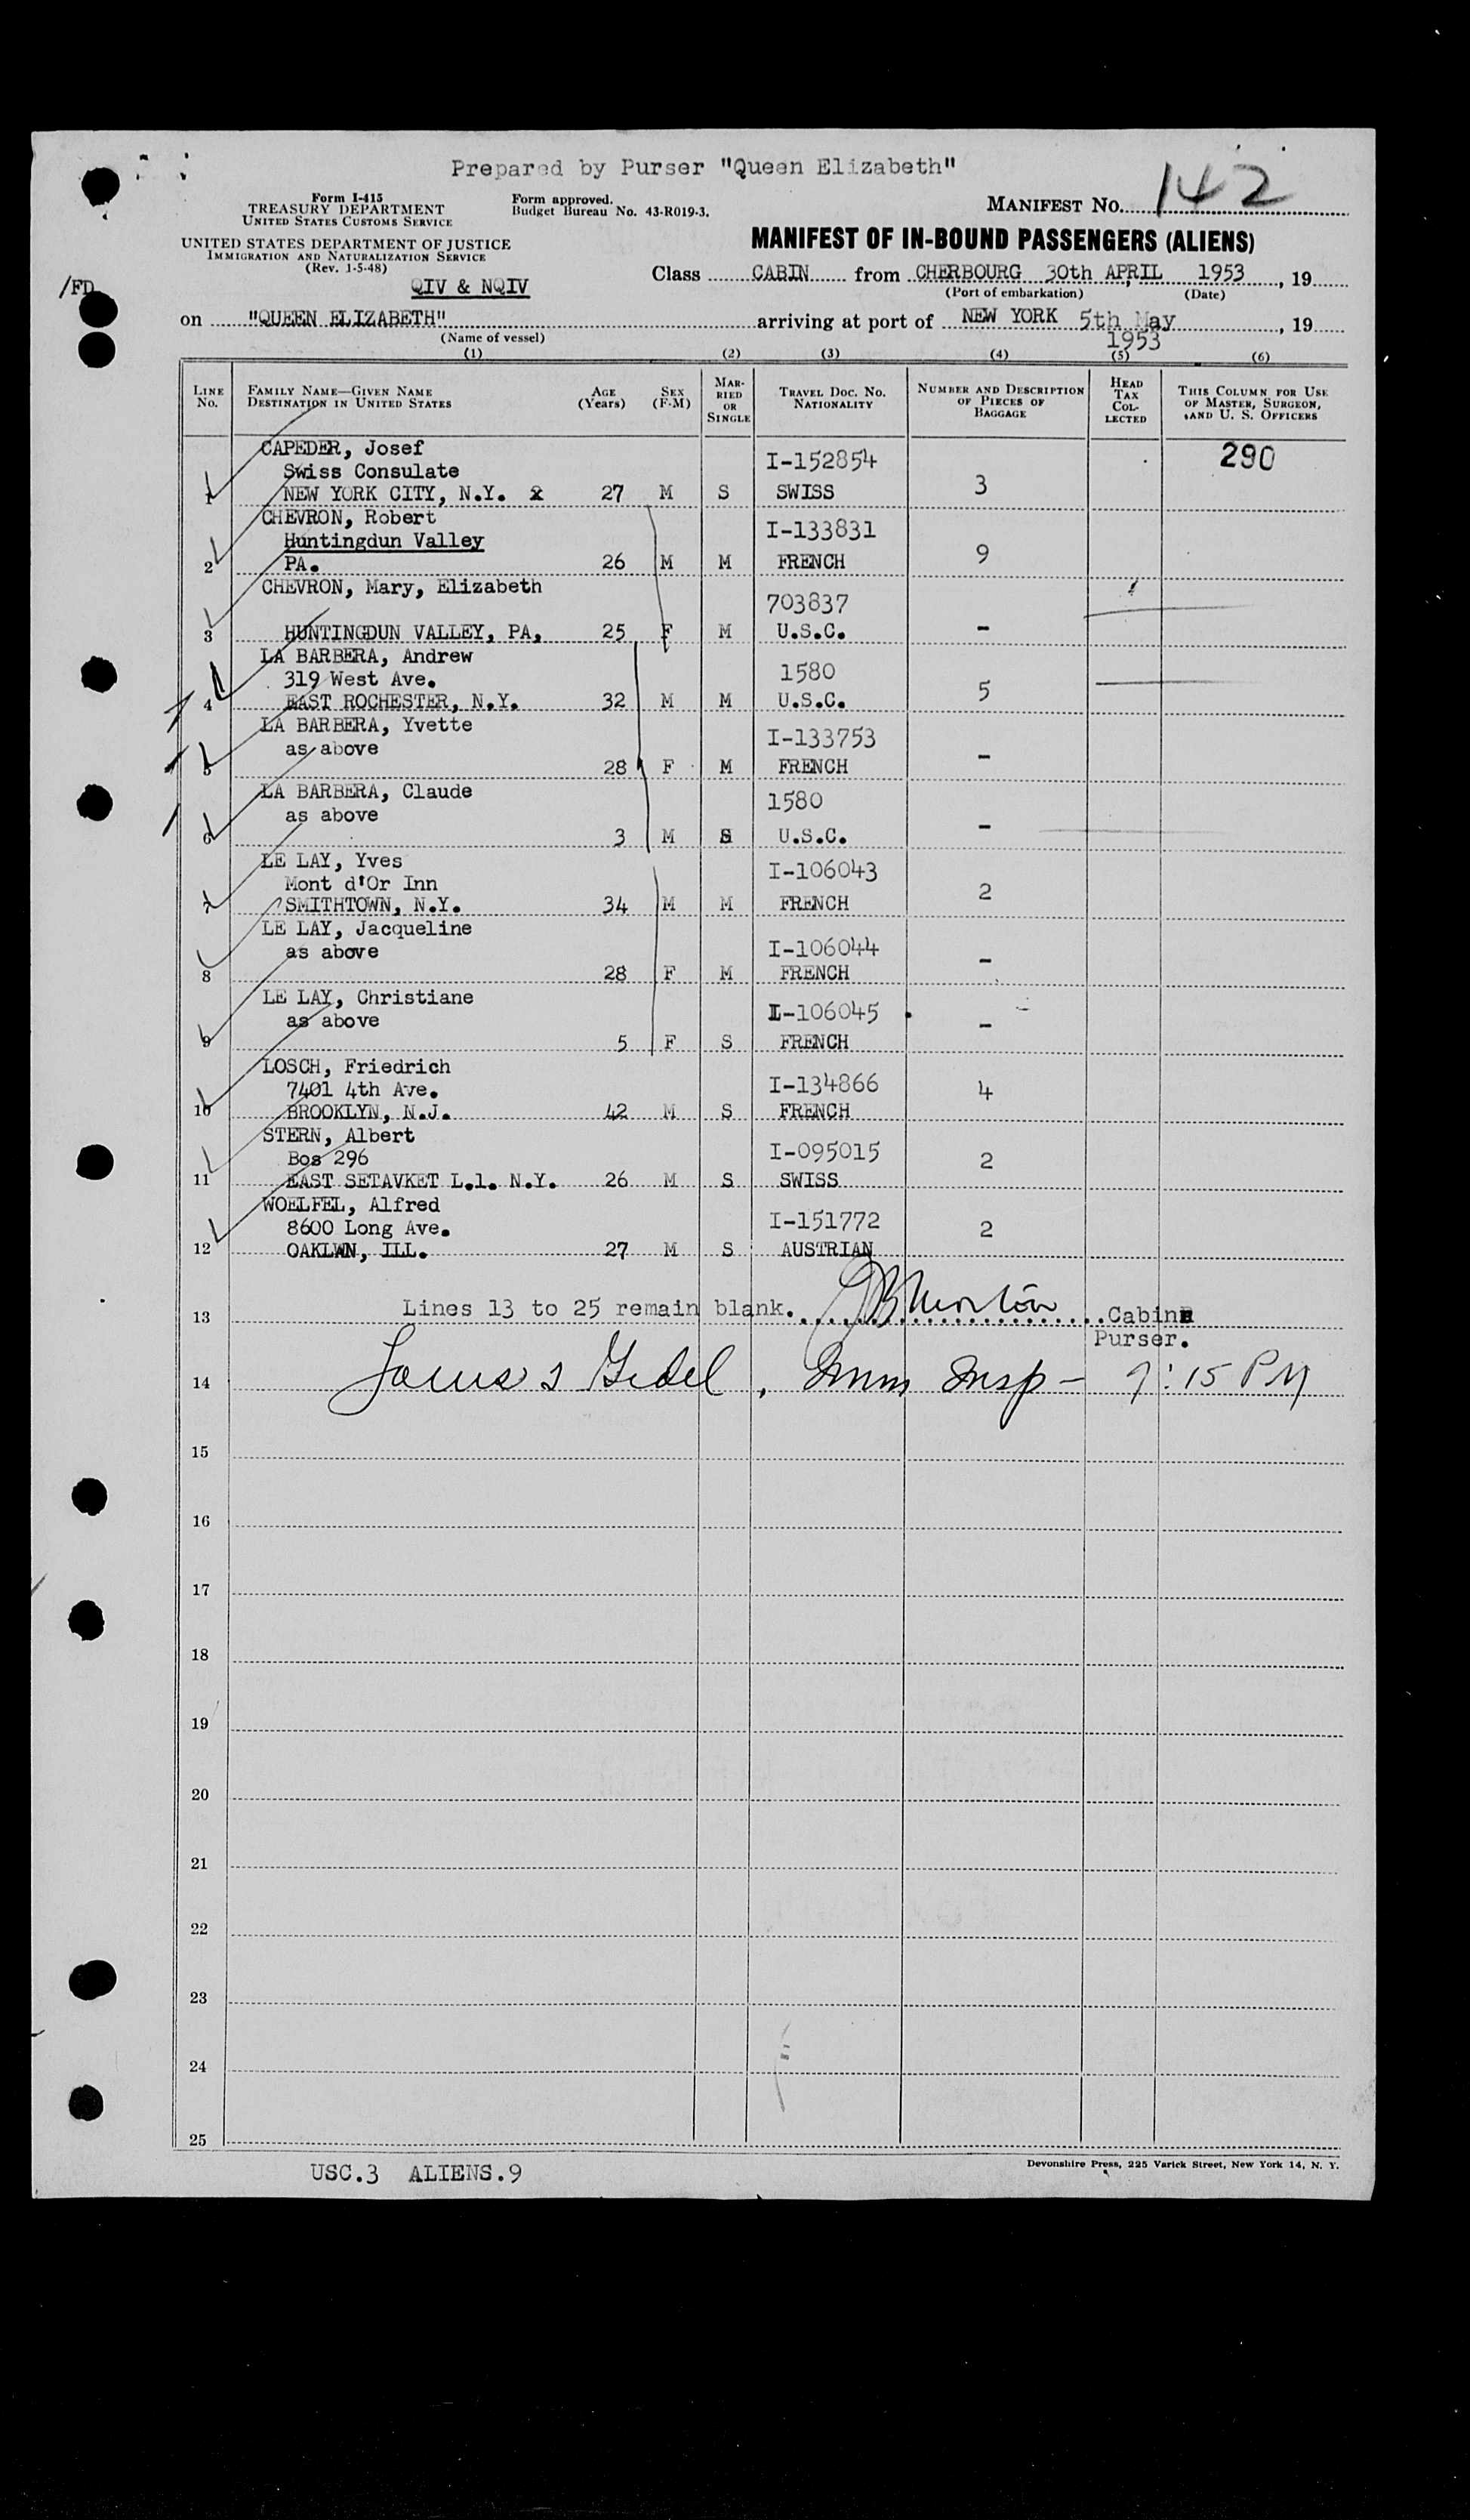 Prepared by Purser "Queen Elizabeth"
Form I-415
TREASURY DEPARTMENT
UNITED STATES CUSTOMS SERVICE
Form approved.
Budget Bureau No. 43-R019-3.
MANIFEST NO. 142
UNITED STATES DEPARTMENT OF JUSTICE
IMMIGRATION AND NATURALIZATION SERVICE
(Rev. 1-5-48)
MANIFEST OF IN-BOUND PASSENGERS (ALIENS)
/FD
QIV & NQIV
Class CABIN from CHERBOURG 30th APRIL 1953, 19
(Port of embarkation) (Date)
on "QUEEN ELIZABETH" arriving at port of NEW YORK 5th May 1953, 19
(Name of vessel)
(1) (2) (3) (4) (5) (6)
LINE No. FAMILY NAME—GIVEN NAME DESTINATION IN UNITED STATES AGE (Years) SEX (F-M) MARRIED OR SINGLE TRAVEL DOC. NO. NATIONALITY NUMBER AND DESCRIPTION OF PIECES OF BAGGAGE HEAD TAX COLLECTED THIS COLUMN FOR USE OF MASTER, SURGEON, AND U. S. OFFICERS
CAPEDER, Josef I-152854 290
Swiss Consulate
1 NEW YORK CITY, N.Y. 27 M S SWISS 3
CHEVRON, Robert I-133831
Huntingdun Valley
2 PA. 26 M M FRENCH 9
CHEVRON, Mary, Elizabeth 703837
3 HUNTINGDUN VALLEY, PA, 25 F M U.S.C. -
LA BARBERA, Andrew 1580
319 West Ave.
4 EAST ROCHESTER, N.Y. 32 M M U.S.C. 5
LA BARBERA, Yvette I-133753
as above
5 28 F M FRENCH -
LA BARBERA, Claude 1580
as above
6 3 M S U.S.C. -
LE LAY, Yves I-106043
Mont d'Or Inn
7 SMITHTOWN, N.Y. 34 M M FRENCH 2
LE LAY, Jacqueline I-106044
as above
8 28 F M FRENCH -
LE LAY, Christiane I-106045
as above
9 5 F S FRENCH -
LOSCH, Friedrich I-134866
7401 4th Ave.
10 BROOKLYN, N.J. 42 M S FRENCH 4
STERN, Albert I-095015
Bos 296
11 EAST SETAVKET L.l. N.Y. 26 M S SWISS 2
WOELFEL, Alfred I-151772
8600 Long Ave.
12 OAKLWN, ILL. 27 M S AUSTRIAN 2
13 Lines 13 to 25 remain blank. Cabin
Purser.
14 Gedel, Imm Insp - 9:15 PM
15
16
17
18
19
20
21
22
23
24
25
USC.3 ALIENS.9
Devonshire Press, 225 Varick Street, New York 14, N. Y.